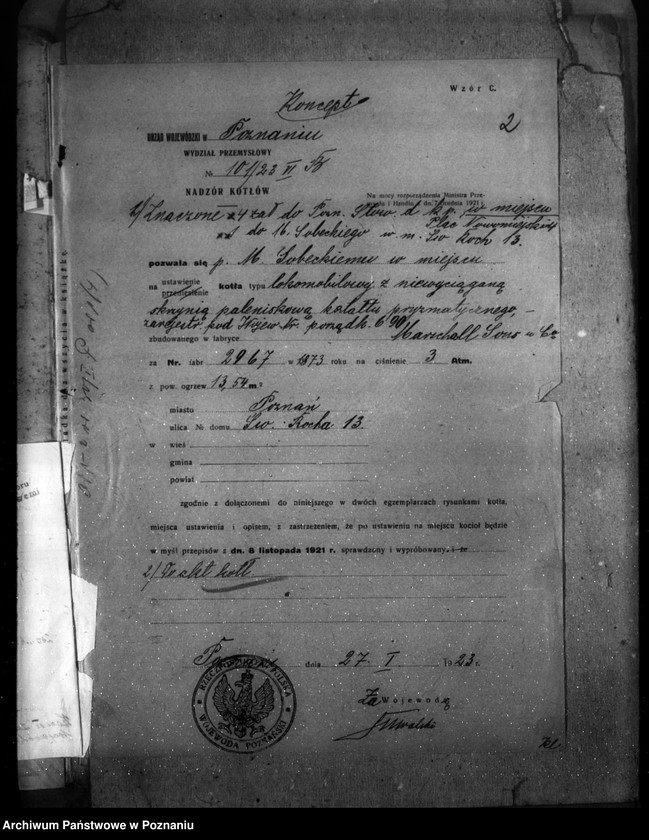 Wzór C.
Koncept
2
URZĄD WOJEWÓDZKI w Poznaniu
WYDZIAŁ PRZEMYSŁOWY
№ 101/23 VI
NADZÓR KOTŁÓW
Na mocy rozporządzenia Ministra Prze-
mysłu i Handlu z dn. grudnia 1921 r.
1/ Znaczone zał do Pozn. Stow. d. k. p. w miejscu
Plac Nowomiejski 4
do M. Sobeckiego w m. Św Roch 13.
pozwala się p. M. Sobeckiemu w miejscu
na ustawienie
przeniesienie kotła typu lokomobilowy z niewyciąganą
skrzynią paleniskową kształtu pryzmatycznego,
zarejestr. pod Nr. porządk. 690
zbudowanego w fabryce Marschall Sons u Co
za Nr. fabr 2967 w 1873 roku na ciśnienie 3 Atm.
z pow. ogrzew. 13,54 m²
miasto Poznań
ulica № domu Św. Rocha 13.
w wieś
gmina
powiat
zgodnie z dołączonemi do niniejszego w dwóch egzemplarzach rysunkami kotła,
miejsca ustawienia i opisem, z zastrzeżeniem, że po ustawieniu na miejscu kocioł będzie
w myśl przepisów z dn. 8 listopada 1921 r. sprawdzony i wypróbowany, i że
2/ kotł
dnia 27. I 1923 r.
Za Wojewodę
RZECZPOSPOLITA POLSKA
WOJEWODA POZNAŃSKI
Archiwum Państwowe w Poznaniu